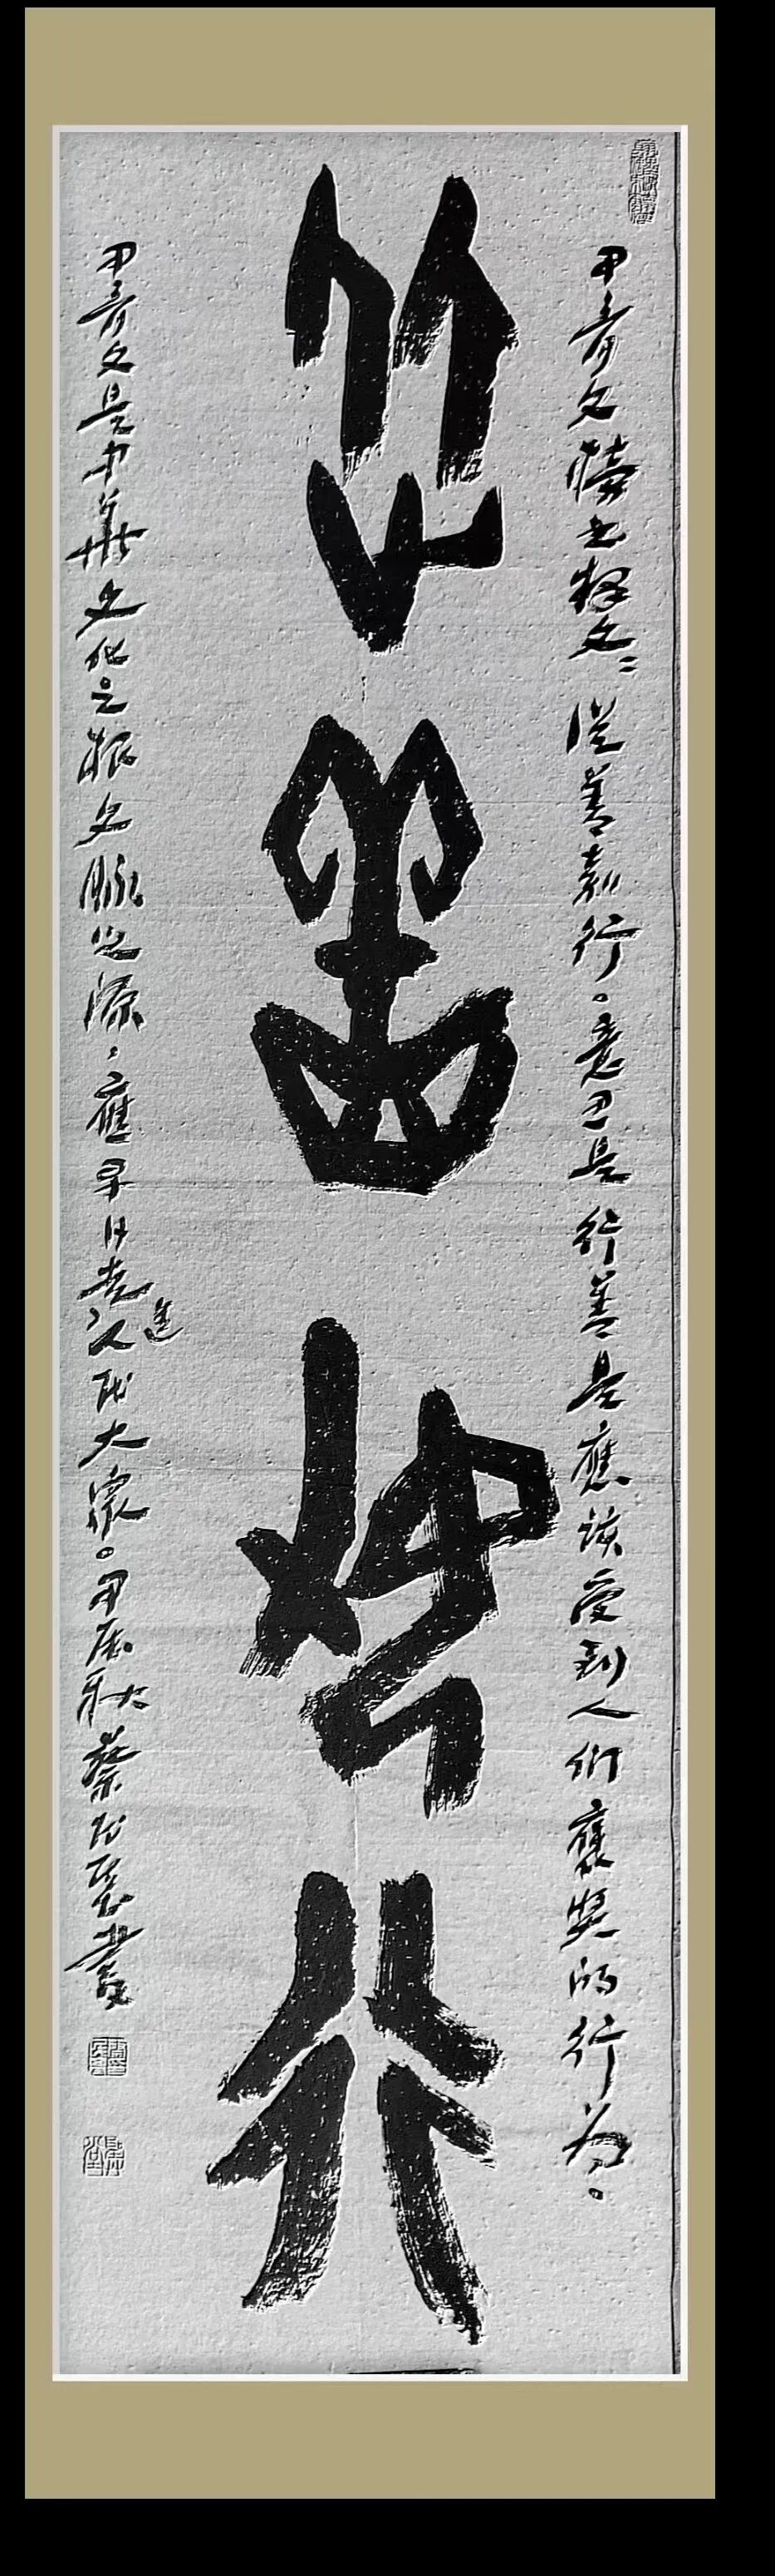 甲骨文榜书释文：從善嘉行。意思是行善是應該受到人们褒獎的行为。
從善嘉行
甲骨文是中華文化之根文脉之源，應早日走進人民大衆。甲辰秋蔡
書